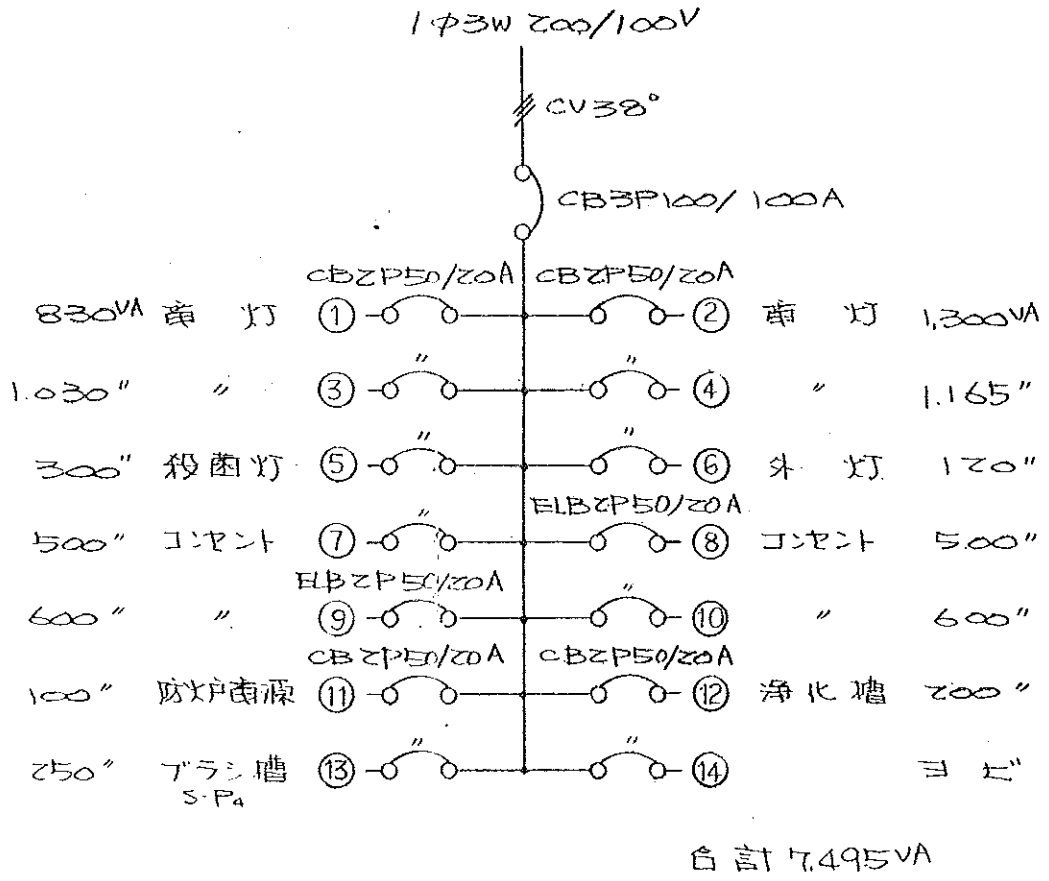 1φ3W 200/100V
CV38°
CB3P100/100A
CB2P50/20A CB2P50/20A
830VA 電灯 ① ② 電灯 1,300VA
〃 〃
1.030〃 〃 ③ ④ 〃 1.165〃
〃 〃
300〃 殺菌灯 ⑤ ⑥ 外灯 120〃
〃 ELB2P50/20A
500〃 コンセント ⑦ ⑧ コンセント 500〃
ELB2P50/20A 〃
600〃 〃 ⑨ ⑩ 〃 600〃
CB2P50/20A CB2P50/20A
100〃 防火戸電源 ⑪ ⑫ 浄化槽 200〃
〃 〃
250〃 ブラシ槽 ⑬ ⑭ ヨビ
S-P4
合計 7.495VA